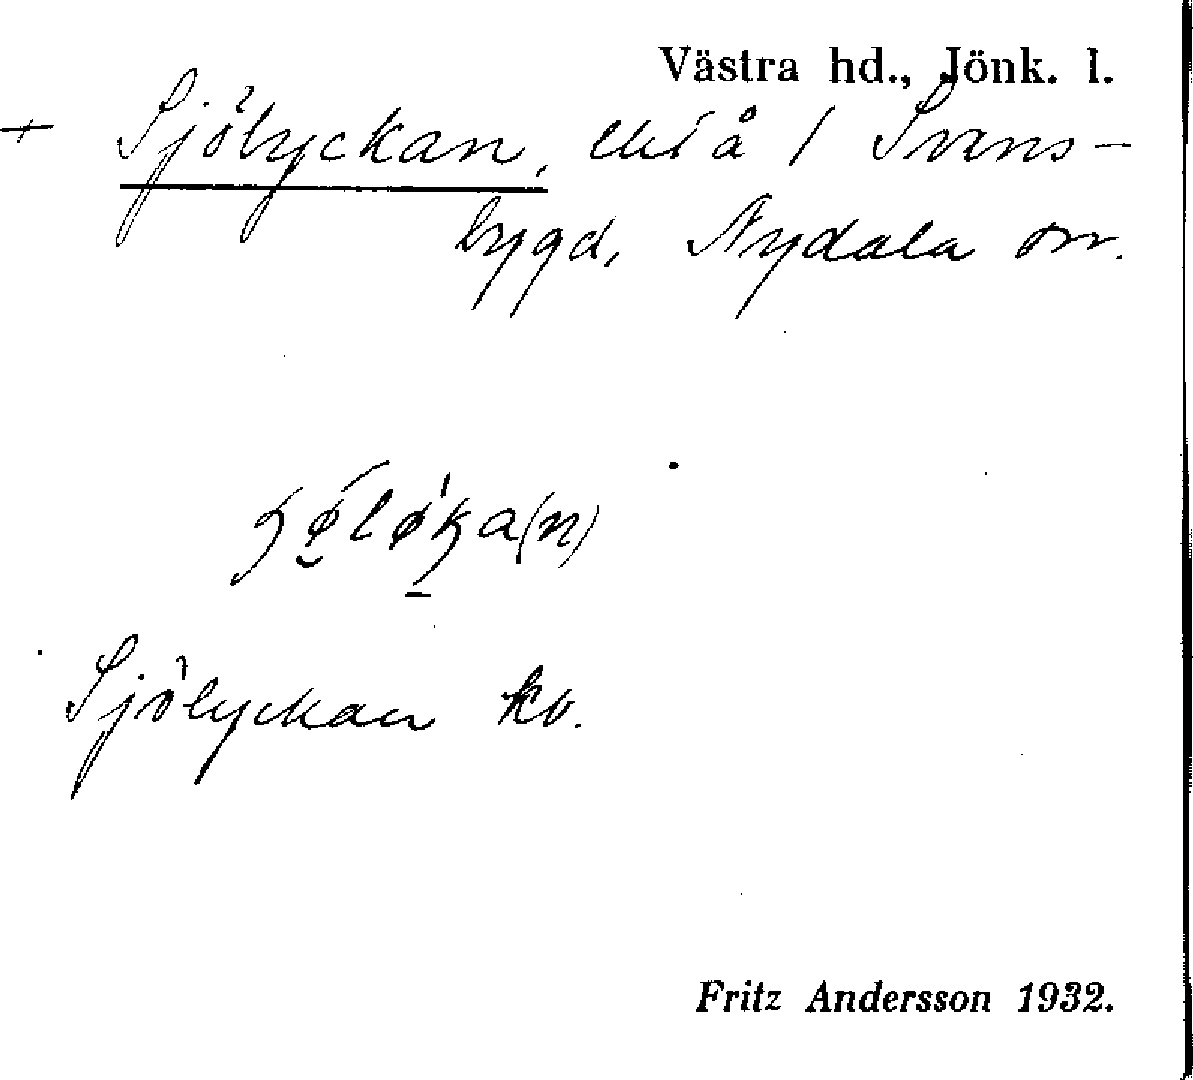 Västra hd., Jönk. l.
+ Sjölyckan, å i Svens-
bygd, Nydala sn.
Sjölyckan kb.
Fritz Andersson 1932.